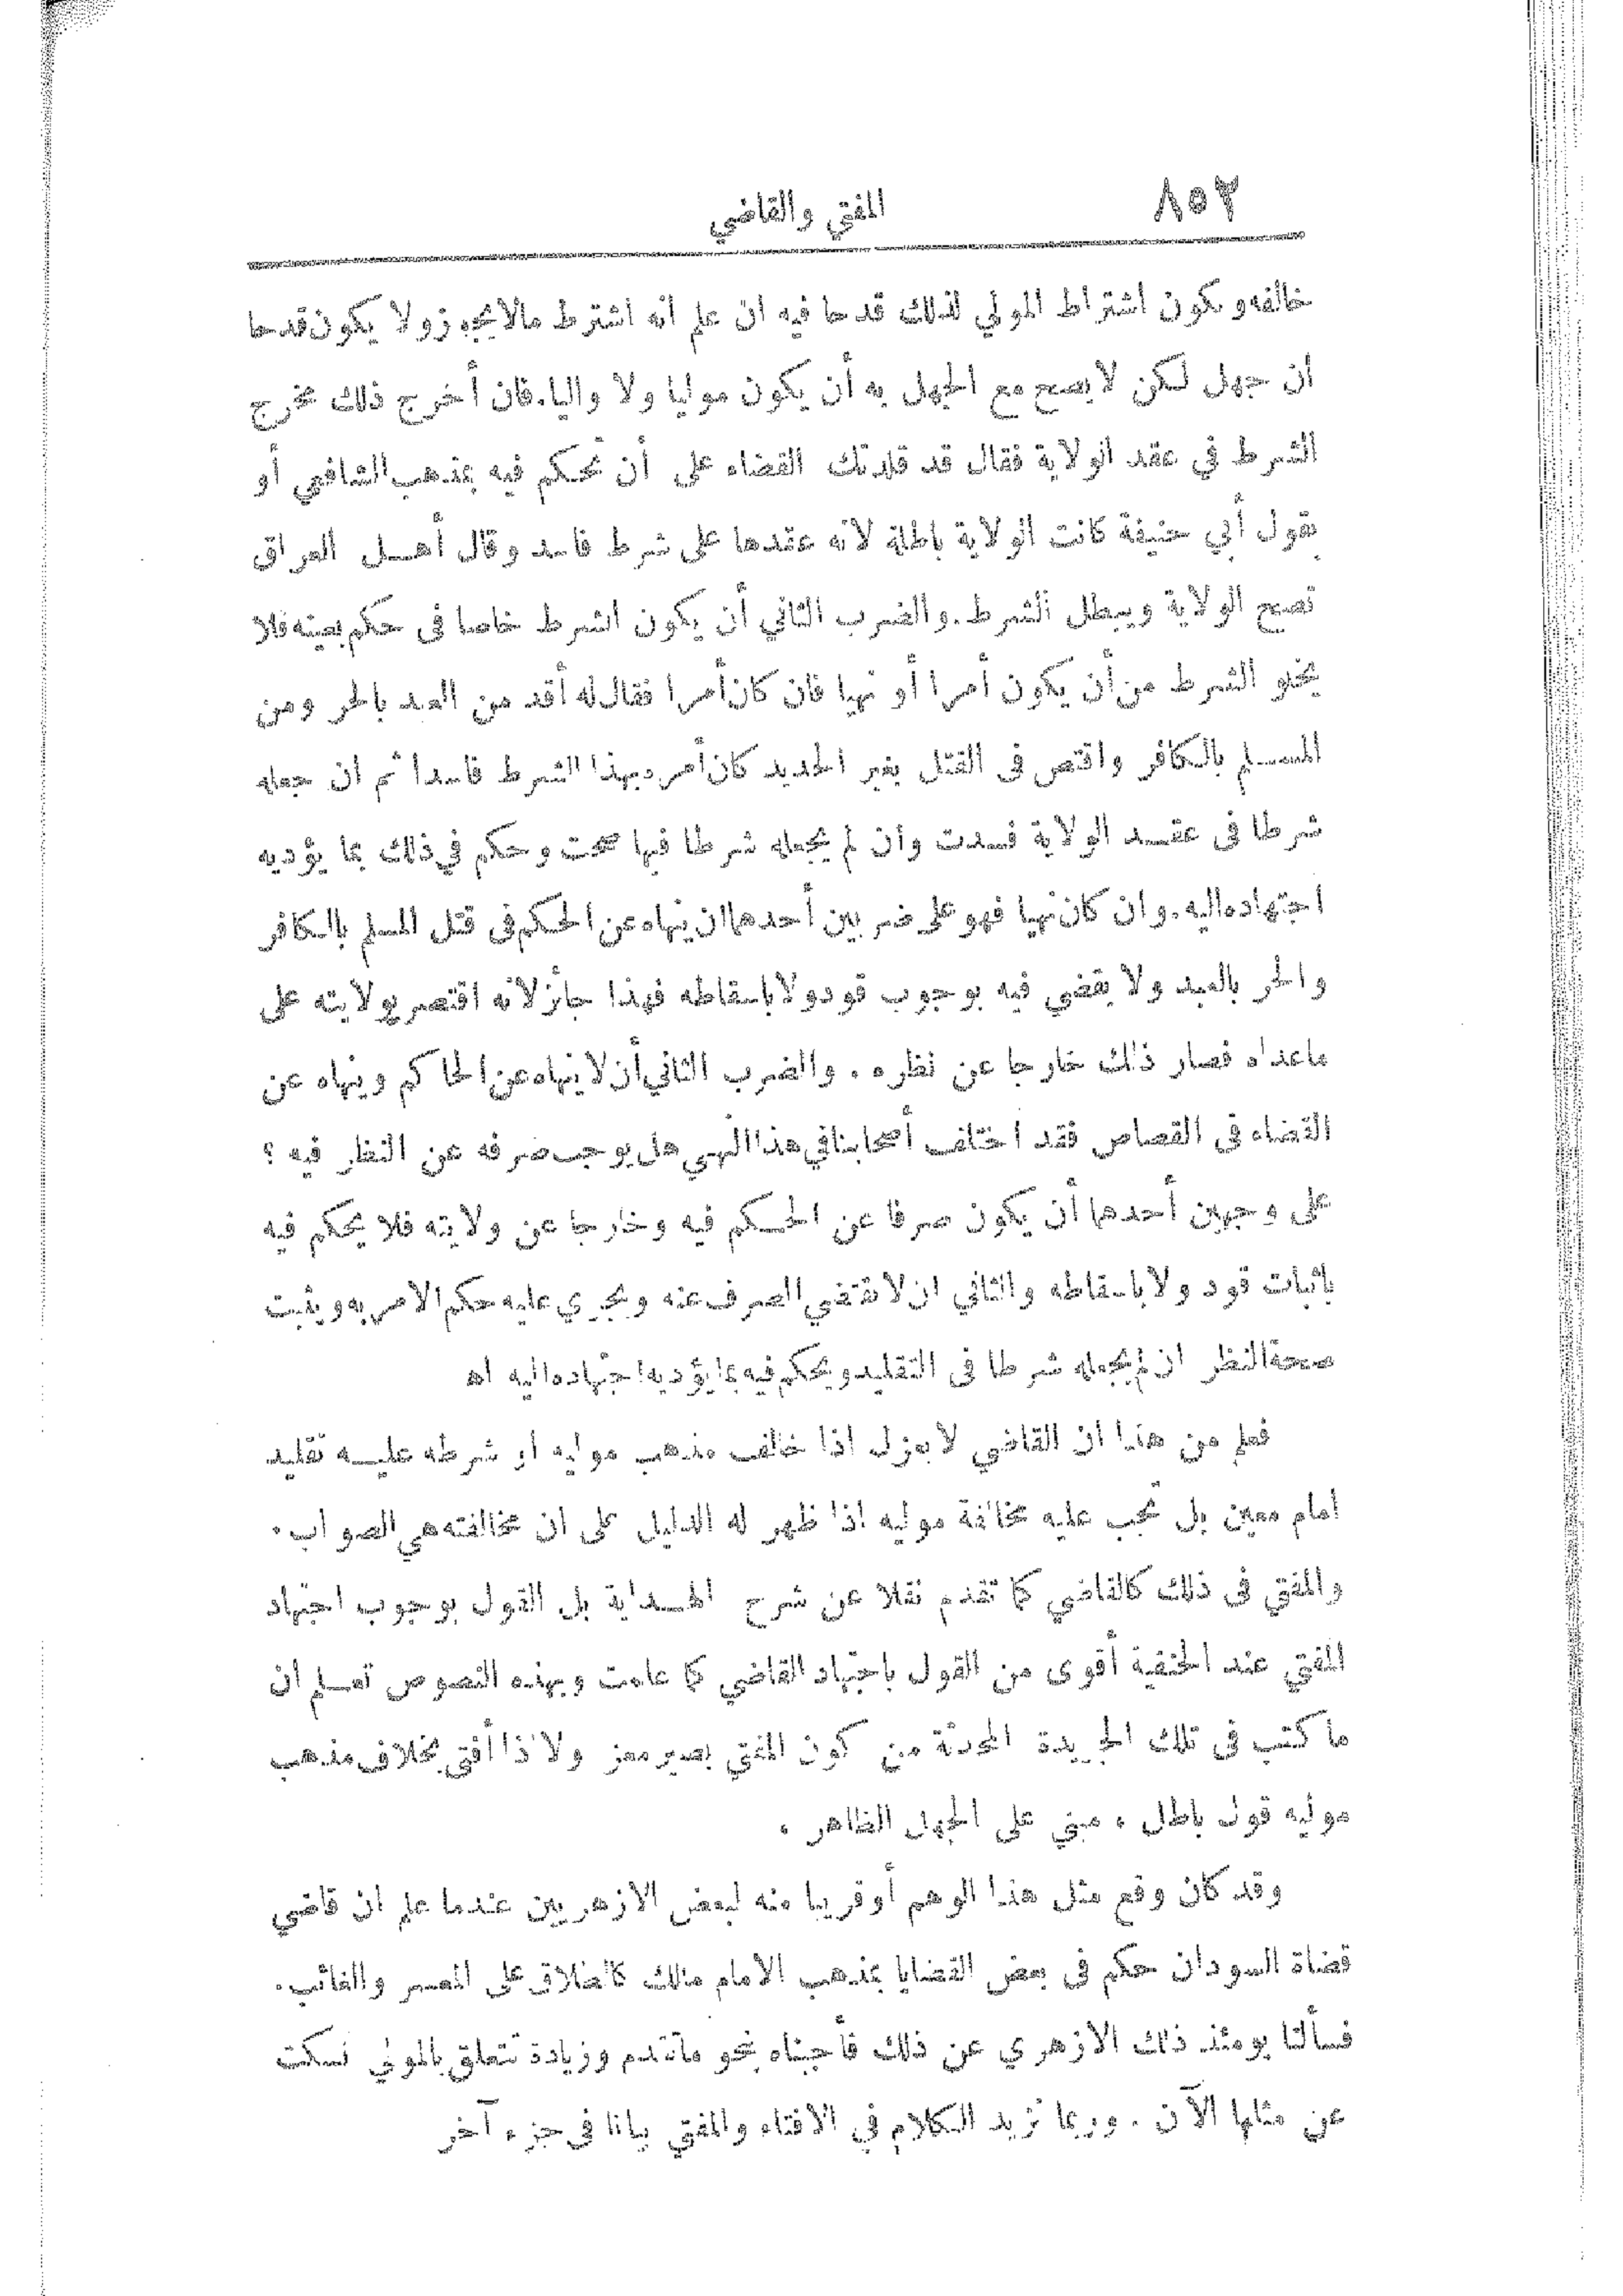 ٨٥٢
المفتي والقاضي
خالفه ويكون اشتراط المولي لذلك قدحا فيه ان علم أنه اشترط مالا يجوز ولا يكون قدحا
ان جهل لكن لا يصح مع الجهل به أن يكون موليا ولا واليا. فان أخرج ذلك مخرج
الشرط في عقد الولاية فقال قد قلدتك القضاء على أن تحكم فيه بمذهب الشافعي أو
بقول أبي حنيفة كانت الولاية باطلة لانه عقدها على شرط فاسد وقال أهل العراق
تصح الولاية ويبطل الشرط. والضرب الثاني أن يكون الشرط خاصا في حكم بعينه فلا
يخلو الشرط من أن يكون أمرا أو نهيا فان كان أمرا فقال له أقد من العبد بالحر ومن
المسلم بالكافر واقتص في القتل بغير الحديد كان أمره بهذا الشرط فاسدا ثم ان جعله
شرطا في عقد الولاية فسدت وان لم يجعله شرطا فيها صحت وحكم في ذلك بما يؤديه
اجتهاده اليه. وان كان نهيا فهو على ضربين أحدهما ان ينهاه عن الحكم في قتل المسلم بالكافر
والحر بالعبد ولا يقضي فيه بوجوب قود ولا باسقاطه فهذا جائز لانه اقتصر بولايته على
ماعداه فصار ذلك خارجا عن نظره. والضرب الثاني أن لا ينهاه عن الحاكم وينهاه عن
القضاء في القصاص فقد اختلف أصحابنا في هذا النهي هل يوجب صرفه عن النظر فيه ؟
على وجهين أحدهما أن يكون صرفا عن الحكم فيه وخارجا عن ولايته فلا يحكم فيه
باثبات قود ولا باسقاطه والثاني ان لا يقتضي الصرف عنه ويجري عليه حكم الامر به ويثبت
صحة النظر ان لم يجعله شرطا في التقليد ويحكم فيه بما يؤديه اجتهاده اليه اه
فعلم من هذا ان القاضي لا يعزل اذا خالف مذهب موليه او شرطه عليه تقليد
امام معين بل تجب عليه مخالفة موليه اذا ظهر له الدليل على ان مخالفته هي الصواب.
والمفتي في ذلك كالقاضي كما تقدم نقلا عن شرح الهداية بل القول بوجوب اجتهاد
المفتي عند الحنفية أقوى من القول باجتهاد القاضي كما علمت وبهذه النصوص تعلم ان
ما كتب في تلك الجريدة المحدثة من كون المفتي يصير معزولا اذا أفتى بخلاف مذهب
موليه قول باطل ، مبني على الجهل الظاهر .
وقد كان وقع مثل هذا الوهم أو قريبا منه لبعض الازهريين عندما علم ان قاضي
قضاة السودان حكم في بعض القضايا بمذهب الامام مالك كالطلاق على المعسر والغائب.
فسألنا يومئذ ذلك الازهري عن ذلك فأجبناه بنحو ماتقدم وزيادة تتعلق بالمولي نسكت
عن مثلها الآن . وربما نزيد الكلام في الافتاء والمفتي بيانا في جزء آخر